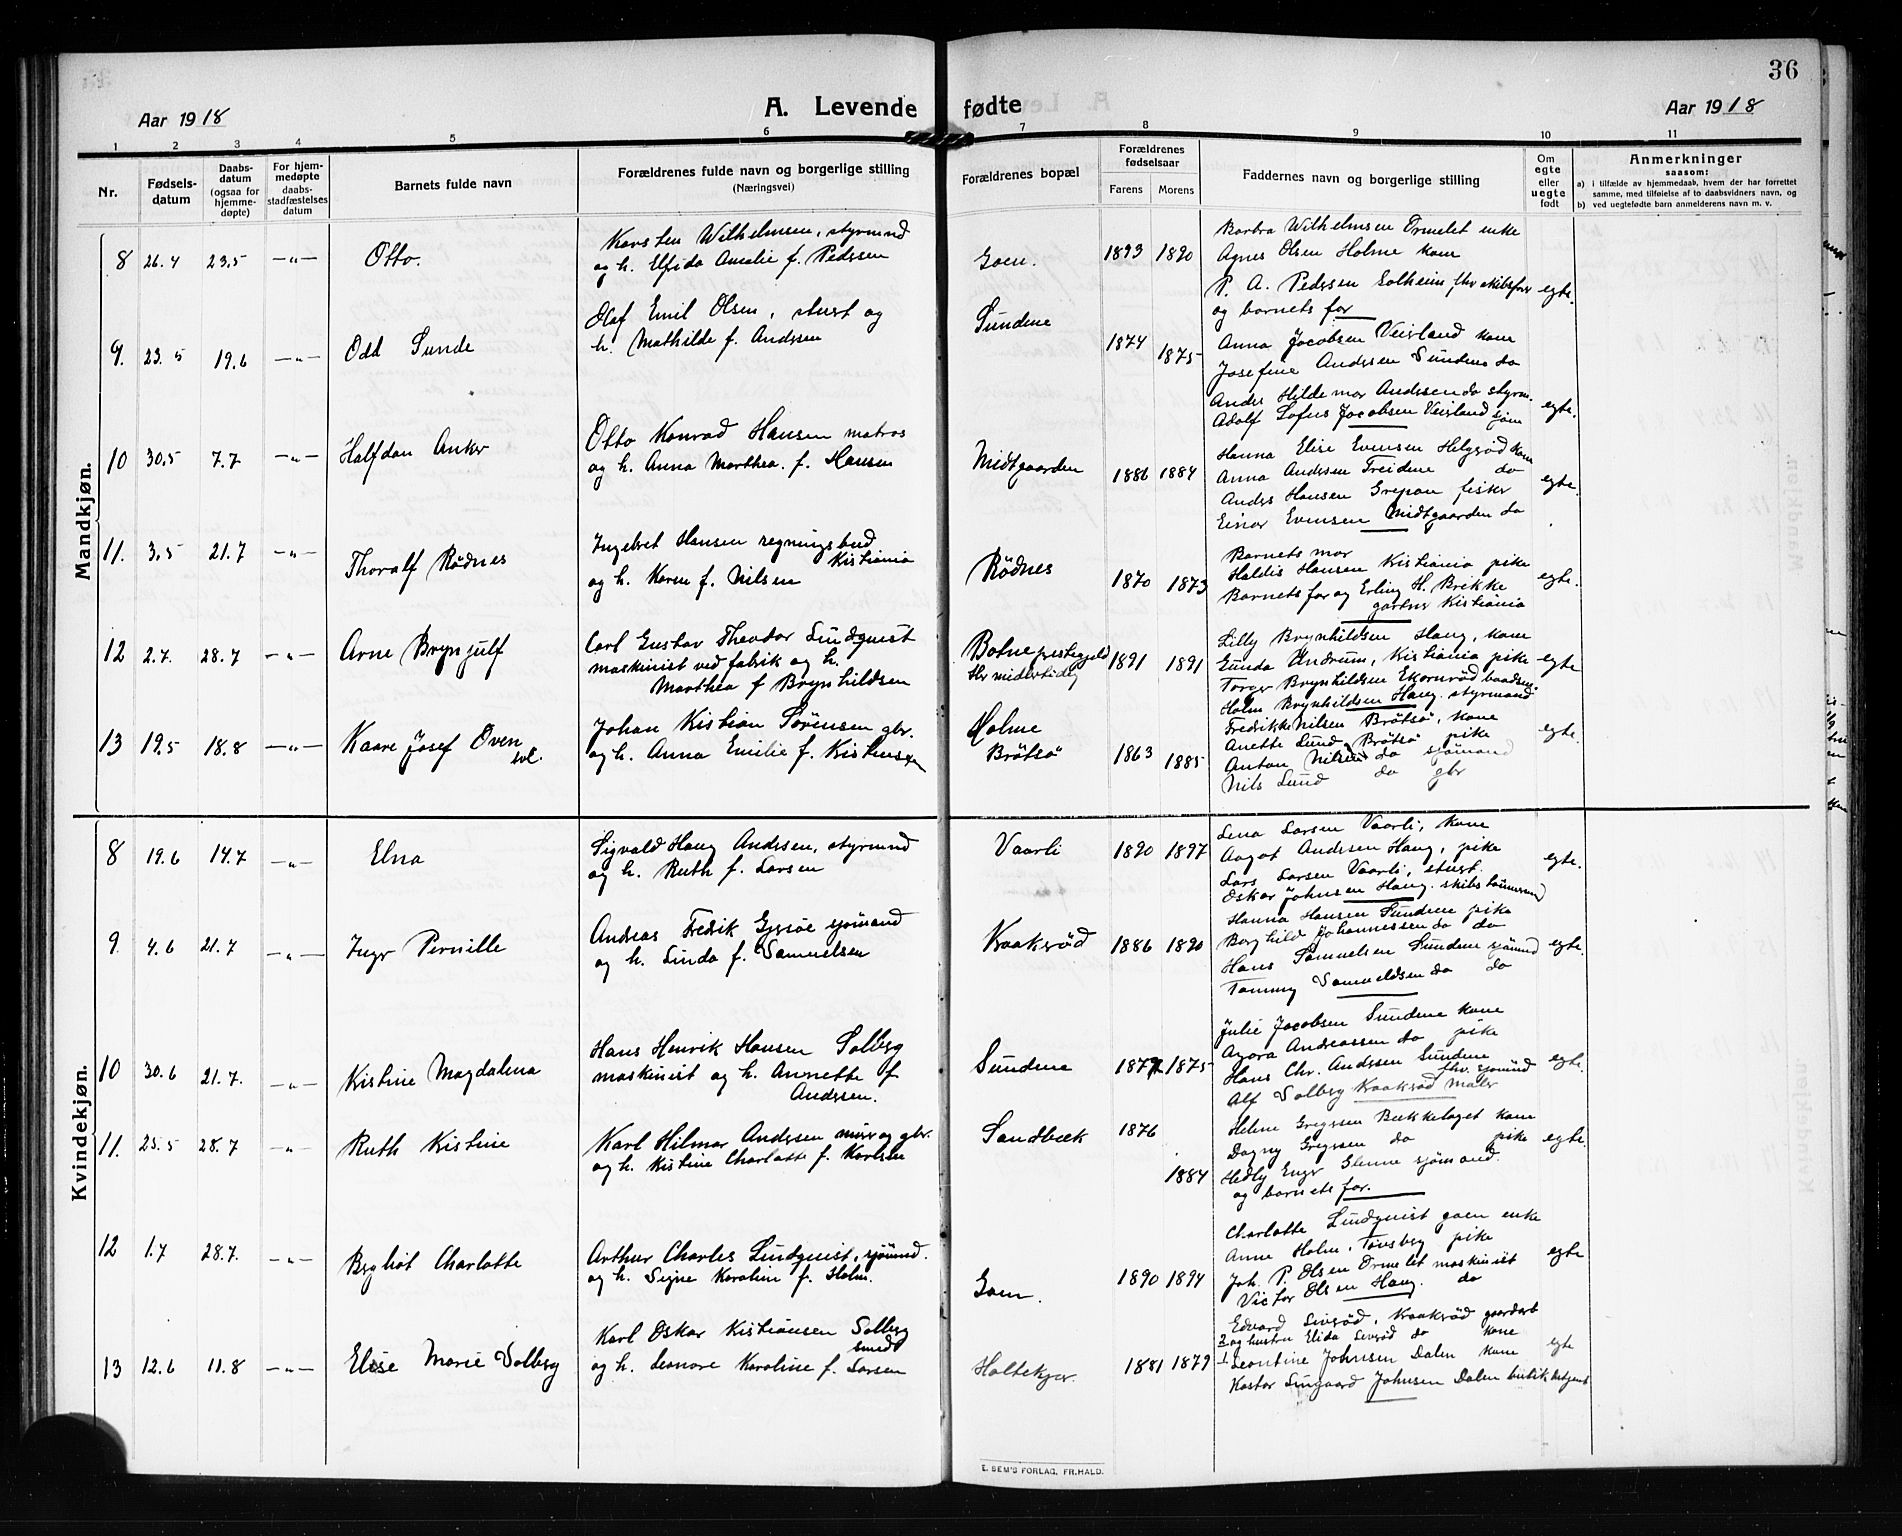 36
Aar 1918
A. Levende fødte
Aar 1918
1 2 3 4 5 6 7 8 9 10 11
Nr.
Fødsels-
datum
Daabs-
datum
(ogsaa for
hjemme-
døpte)
For hjem-
medøpte
daabs-
stadfæstelses
datum
Barnets fulde navn
Forældrenes fulde navn og borgerlige stilling
(Næringsvei)
Forældrenes bopæl
Forældrenes
fødselsaar
Farens Morens
Faddernes navn og borgerlige stilling
Om
egte
eller
uegte
født
Anmerkninger
saasom:
a) i tilfælde av hjemmedaab, hvem der har forrettet
samme, med tilføielse af to daabsvidners navn, og
b) ved uegtefødte barn anmelderens navn m. v.
Mandkjøn.
8 26.4 23.5 —"— Otto.
Karsten Wilhelmsen, styrmnd
og h. Elfida Amalie f. Pedersen
Goen. 1893 1890
Barbra Wilhelmsen Ormelet enke
Agnes Olsen Holme kone
P. A. Pedersen Solheim fhv skibsfør
og barnets far
egte.
9. 23.5 19.6 —"— Odd Sunde
Olaf Emil Olsen, stuert og
h. Mathilde f. Andersen
Sundene 1874 1875
Anna Jacobsen Veierland kone
Josefine Andersen Sundene do
Anders Hildemar Andersen do styrm.
Adolf Sofus Jacobsen Veierland sjøm
egte.
10 30.5 7.7 —"— Halfdan Anker
Otto Konrad Hansen matros
og h. Anna Marthea f. Hansen
Midtgaarden 1886 1884
Hanna Elise Evensen Helgerød kone
Anna Andersen Treidene do
Anders Hansen Grepan fisker
Einar Evensen Midtgaarden do
egte.
11. 3.5 21.7 —"— Thoralf Rødnes
Ingebret Hansen regningsbud
Kristiania
og h. Karen f. Nilsen
Rødnes 1870 1873
Barnets mor
Haldis Hansen Kristiania pike
Barnets far og Erling H. Brekke
gartner Kristiania
egte.
12 2.7. 28.7 —"— Arne Brynjulf
Carl Gustav Theodor Lindquist
maskinist ved fabrik og h.
Marthea f Brynhildsen
Botne prestegjeld
Her midlertidig
1891 1891
Lilly Brynhildsen Haug, kone
Gunda Undrum, Kristiania pike
Torger Brynhildsen Ekornrød baadsm.
Holm Brynhildsen Haug. styrmand
egte
13 19.5 18.8 —"— Kaare Josef Oven
Johan Kristian Sørensen gbr.
og h. Anna Emilie f. Kristensen
Holme
Brøtsø
1863 1885
Fredrikke Nilsen Brøtsø, kone
Anette Lund, Brøtsø pike
Anton Nilsen do sjømand
Nils Lund do gbr
egte.
Kvindekjøn.
8 19.6 14.7 —"— Elna
Sigvald Haug Andersen, styrmnd
og h. Ruth f. Larsen
Vaarli 1890 1897
Lena Larsen Vaarli, kone
Aagot Andersen Haug, pike
Lars Larsen Vaarli, stuert.
Oskar Johnsen Haug. skibstømmermd
egte.
9. 4.6 21.7 —"— Inger Pernille
Andreas Fredrik Gjersøe sjømand
og h. Linda f. Samuelsen
Kraakerød 1886 1890
Hanna Hansen Sundene pike
Borghild Johannessen do do
Hans Samuelsen Sundene sjømnd
Tommy Samuelsen do do
egte.
10 30.6 21.7. —"— Kristine Magdalena
Hans Henrik Hansen Solberg
maskinist og h. Annette f
Andersen.
Sundene 1877 1875
Julie Jacobsen Sundene kone
Agora Andreassen do pike
Hans Chr. Andersen Sundene
fhv. sjømnd
Alf Solberg Kraakerød maler
egte.
11. 25.5 28.7 —"— Ruth Kristine
Karl Hilmar Andersen murer og gbr.
og h. Kristine Charlotte f. Karlsen
Sandbæk 1876 1884
Helene Gregersen Bækkelaget kone
Dagny Gregersen do pike
Hedly Enger Glenne sjømand.
og barnets far.
egte.
12 1.7 28.7. —"— Bergliot Charlotte
Arthur Charles Lindquist, sjømnd.
og h. Signe Karoline f. Holm.
Goen. 1890 1894
Charlotte Lindquist Goen enke
Anne Holm, Tønsberg pike
Joh. P. Olsen Ormelet maskinist
Victor Olsen Haug. do
egte
13 12.6 11.8 —"— Elise Marie Solberg
Karl Oskar Kristiansen Solberg
smed
og h. Leonore Karoline f. Larsen
Holtekjær. 1881 1879
Edvard Leverød, Kraakerød gaardarb
2 og hustru Elida Leverød do kone
1 Leontine Johnsen Dalen kone
Kastor Lingaard Johnsen Dalen butikbetjent
egte
E. SEM'S FORLAG, FR.HALD.